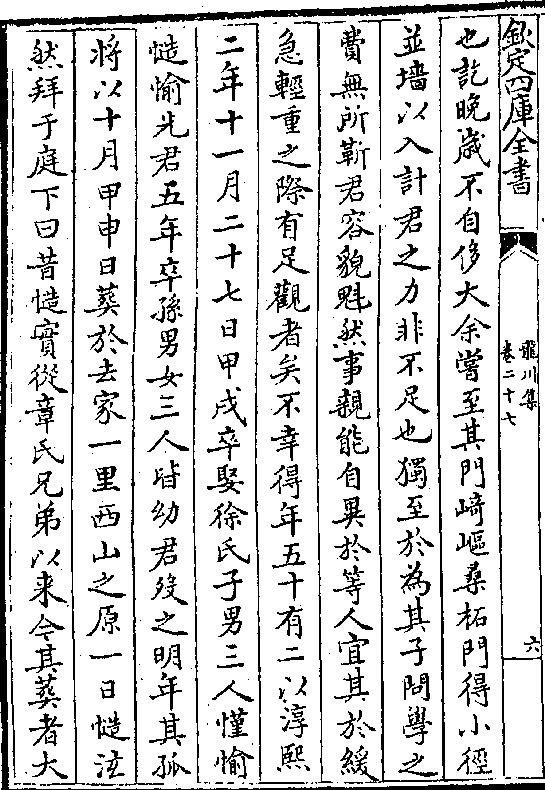 欽定四庫全書
龍川集
卷二十七
六
也訖晚歲不自侈大余嘗至其門﨑嶇桑柘門得小徑
並墻以入計君之力非不足也獨至於為其子問學之
費無所靳君容貌魁然事親能自異於等人宜其於緩
急輕重之際有足觀者矣不幸得年五十有二以淳熙
二年十一月二十七日甲戌卒娶徐氏子男三人慬愉
愭愉先君五年卒孫男女三人皆幼君歿之明年其孤
將以十月甲申日葬於去家一里西山之原一日愭泫
然拜于庭下曰昔愭實從章氏兄弟以来今其葬者大